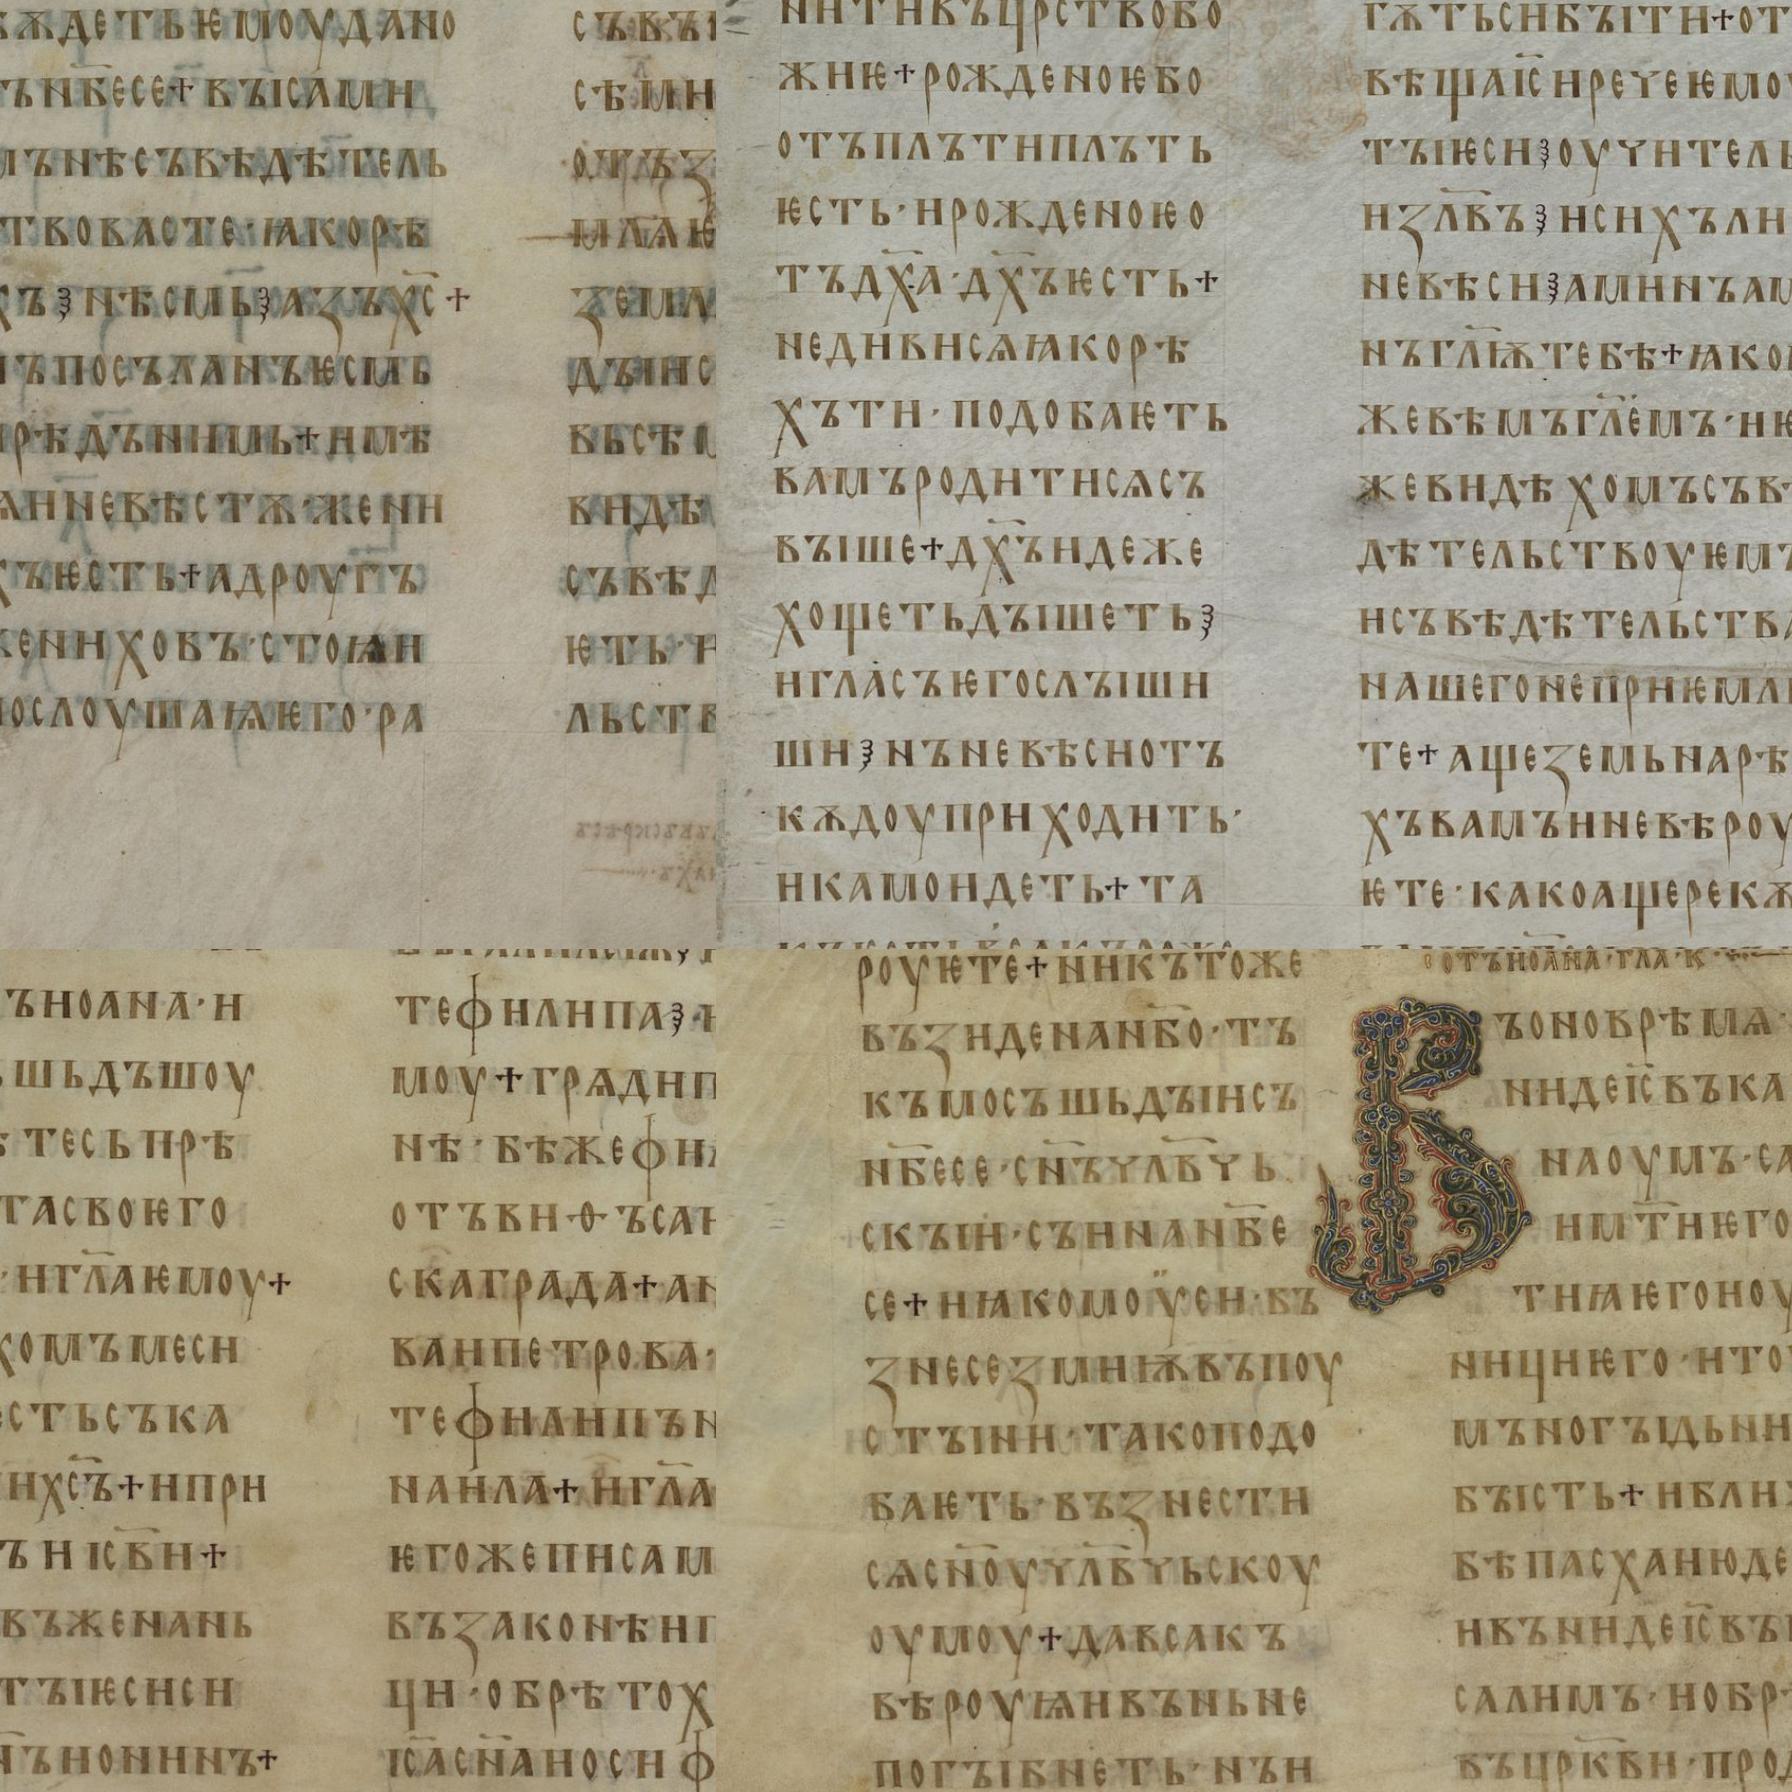 ѫдетьѥмоудано
ънб҃есе+вꙑсами
мънѣсъвѣдѣтель
твовасте·ꙗкорѣ
хъ⸾нѣсмь⸾азъхс҃+
нъпосъланъѥсмь
прѣдъннимь+имѣ
ꙗиневѣстѫ·жени
хъѥсть+адроугъ
женнховъ·стоꙗи
послоушаѩѥго·ра
съвъ
сѣми
отъз
млѧѥ
земл
дꙑис
вьсѣм
видѣ
съвѣд
ѥть·н
льств
нитивъцрствобо
жиѥ+рожденоѥбо
отъплътиплъть
ѥсть·ирожденоѥо
тъдх҃а·дх҃ъѥсть+
недивисѧꙗкорѣ
хъти·подобаѥть
вамъродитисѧсъ
вꙑше+дх҃ъидеже
хощетьдꙑшеть⸾
игласъѥгослꙑши
ши⸾нъневѣсиотъ
кѫдоуприходить·
икамоидеть+та
гѫтьсибꙑти+от
вѣщаіс҃иречеѥмо
тꙑѥси⸾оучитель
изл҃въ⸾исихълн
невѣси⸾аминъам
нъгл҃ѭтебѣ+ꙗко
жевѣмъгл҃емъ·иѥ
жевидѣхомъсъв
дѣтельствоуѥмъ
исъвѣдѣтельства
нашегонеприѥмл
те+ащеземьнарѣ
хъвамъиневѣроу
ѥте·какоащерекѫ
ъиоана·и
шьдъшоу
тесьпрѣ
тасвоѥго
·игл҃аѥмоу+
комъмеси
естьсъка
ихс҃ъ+ипри
ъиісв҃и+
въженань
тꙑѥсисн
н҃ъионинъ+
тефилипа⸾и
моу+грѧдип
нѣ·бѣжефи
отъви·ѳ·ъсаи
скаграда+ан
ваипетрова·
тефилипън
наила+игл҃а
ѥгожеписам
възаконѣип
ци·обрѣтох
іс҃асн҃аносиф
роуѥте+никътоже
възиденанб҃о·тъ
къмосъшьдꙑисъ
нб҃есе·сн҃ъчл҃вчь
скꙑи·сꙑинанб҃е
се+иꙗкомоѵси·въ
знесезмиѭвъпоу
стꙑни·такоподо
баѥть·възнести
сѧсн҃оучл҃вчьскоу
оумоу+давсакъ
вѣроуѩивъньне
погꙑбнеть·нъи
отъиоана·гла·к·
Въоноврѣмѧ·
ниде іс҃въка
наоумъ·са
имт҃иѥго
тиꙗѥгоиоу
ниѥго·ито
мъногꙑдьни
бꙑсть+иблн
бѣпасхаиюде
ивънидеіс҃въ
салимъ·иобрѣ
въцркв҃и·про